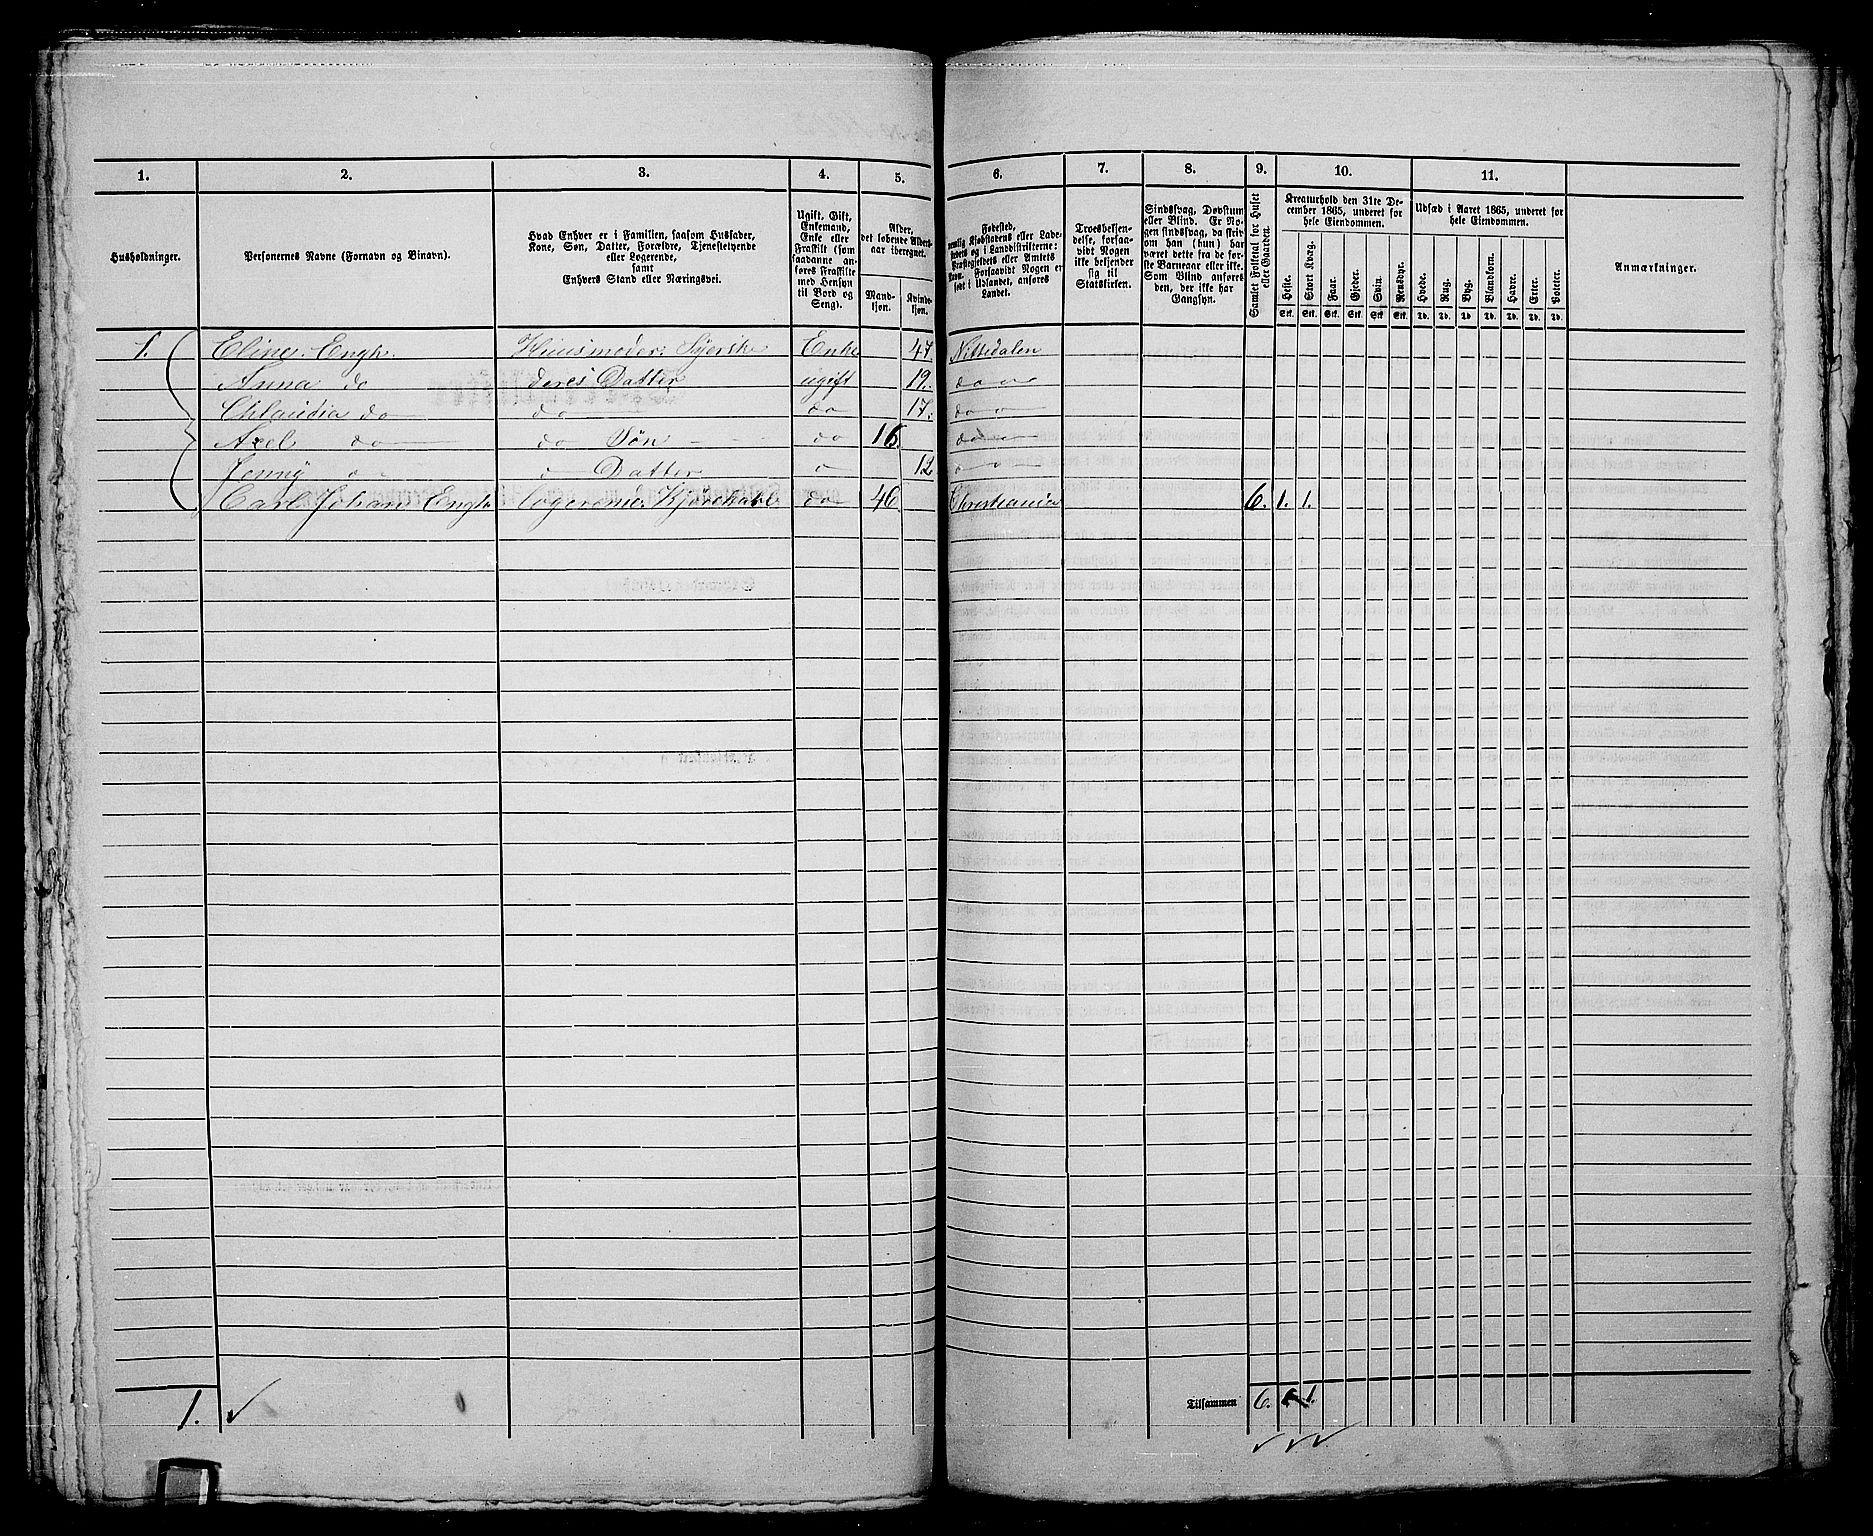 1. 2. 3. 4. 5. 6. 7. 8. 9. 10. 11.
Husholdninger.
Personernes Navne (Fornavn og Binavn).
Hvad Enhver er i Familien, saasom Husfader,
Kone, Søn, Datter, Forældre, Tjenestetyende
eller Logerende,
samt
Enhvers Stand eller Næringsvei.
Ugift, Gift,
Enkemand,
Enke eller
Fraskilt (som
saadanne an-
føres Fraskilte
med Hensyn
til Bord og
Seng).
Alder,
det løbende Alders-
aar iberegnet.
Mand-
kjøn.
Kvinde-
kjøn.
Fødested,
nemlig Kjøbstadens eller Lade-
stedets og i Landdistrikterne:
Præstegjeldets eller Amtets
Navn. Forsaavidt Nogen er
født i Udlandet, anføres
Landet.
Troesbekjen-
delse, forsaa-
vidt Nogen
ikke bekjender
sig til
Statskirken.
Sindssvag, Døvstum
eller Blind. Er No-
gen sindssvag, da skriv
om han (hun) har
været dette fra de før-
ste Barneaar eller ikke.
Som Blind anføres
den, der ikke har
Gangsyn.
Samlet Folketal for Huset
eller Gaarden.
Kreaturhold den 31te De-
cember 1865, underet for
hele Eiendommen.
Heste. Stort Kvæg. Faar. Gjeder. Svin. Rensdyr.
Stk. Stk. Stk. Stk. Stk. Stk.
Udsæd i Aaret 1865, underet for
hele Eiendommen.
Hvede. Rug. Byg. Blandkorn. Havre. Erter. Poteter.
Td. Td. Td. Td. Td. Td. Td.
Anmærkninger.
1. Eline Engh. Huusmoder: Syerske Enke 47. Nittedalen
Anna do deres Datter ugift 19. do
Chlaudia do do do 17. do
Axel do do Søn do 16. do
Jenny Datter 12.
Carl Johan Engh logerende. do 46 Christiania 6. 1. 1.
1.
Tilsammen 6. 1. 1.